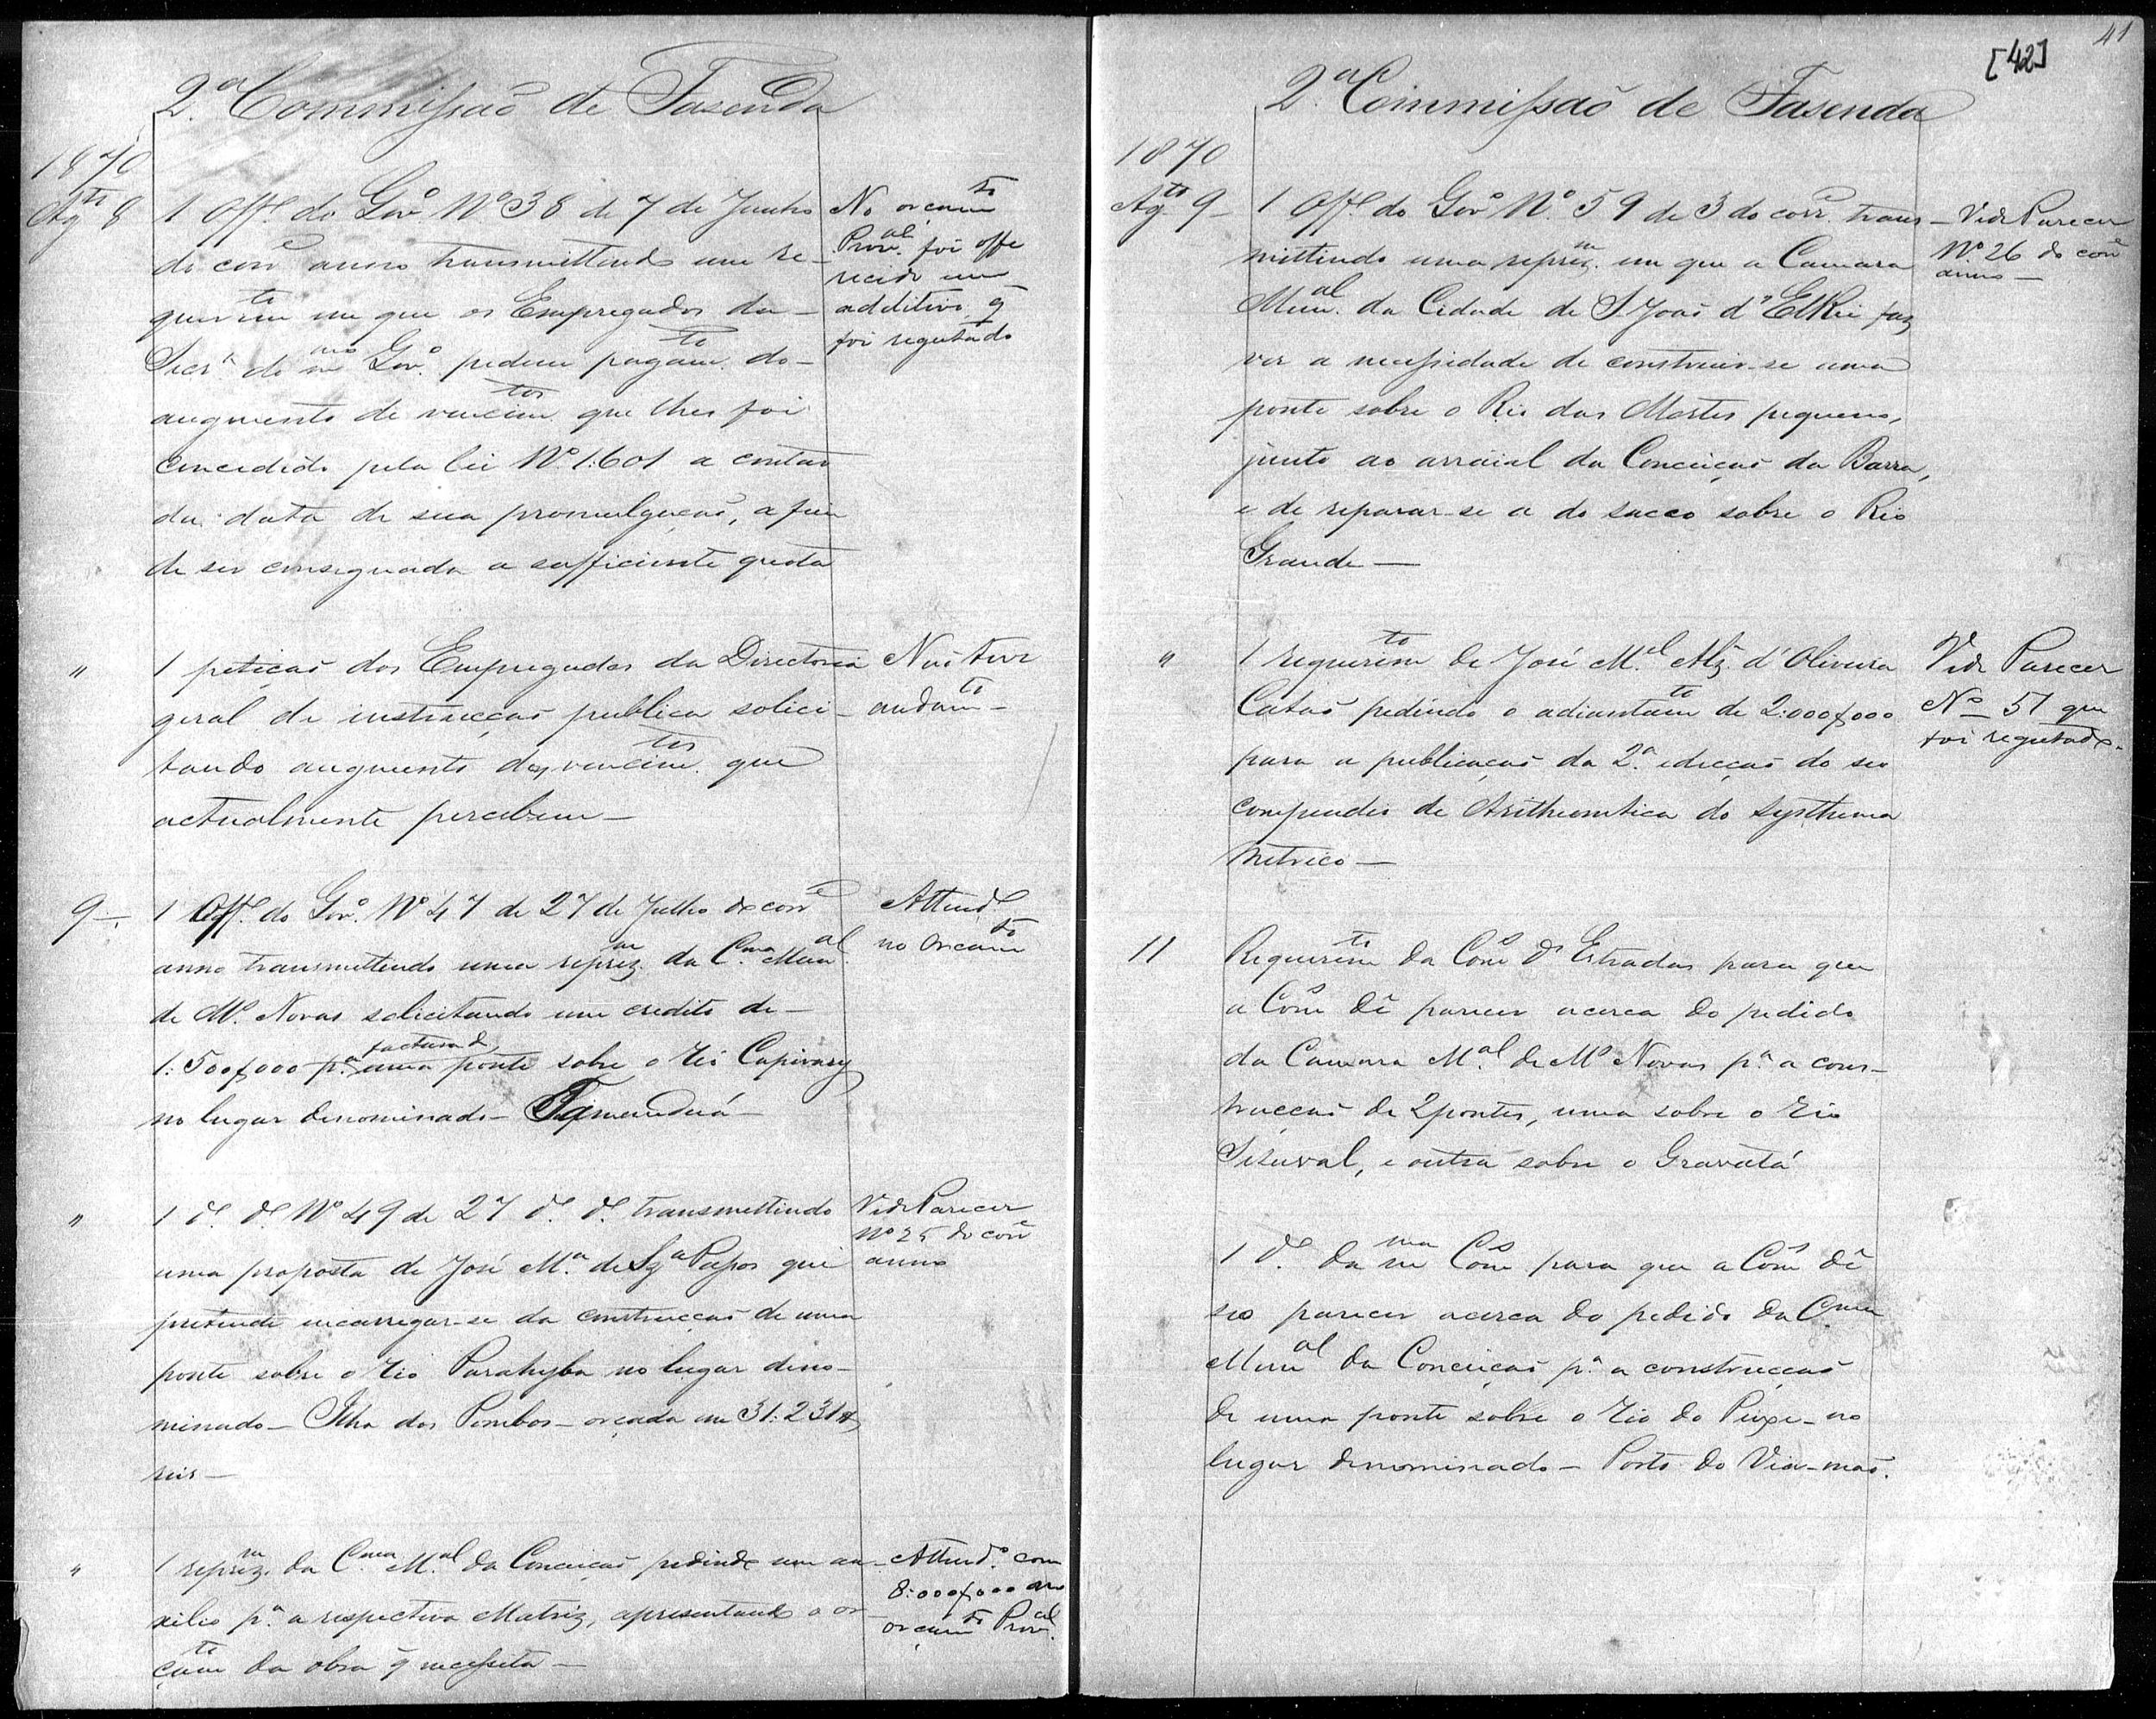 2.ª Commissaõ de Fasenda
1870
Ag.to 8
1 Off.e do Gov.o Nº 38 de 7 de Junho
do corr.e anno transmittindo um re-
querim.to em que os Empregados da
Secr.a do m.mo Gov.o pedem pagam.to do
augmento de vencim.tos que lhes foi
concedido pela lei Nº 1:601 a contar
da data de sua promulgaçaõ, a fim
de ser consignada a sufficiente quota
No orçam.to
Prov.al foi offe
recido um
additivo q̃
foi regeitado
" 1 petiçaõ dos Empregados da Directoria
geral de instrucçaõ publica solici-
tando augmento dos vencim.tos que
actualmente percebem—
Naõ teve
andam.to—
9—. 1 Off.e do Gov.o Nº 47 de 27 de Julho do corr.e
anno transmittindo uma reprez.m da C.mara Mun.al
de M.s Novas solicitando um credito de—
1:500$000 p.a factura de uma ponte sobre o rio Capivary
no lugar denominado— Tamanduá—
Attend.e
no orçam.to
" 1 d.e d.e Nº 49 de 27 d.e d.e transmettindo
uma proposta de José M.a de Sz.a Pafos que
pretende encarregar-se da construcçaõ de uma
ponte sobre o rio Parahyba no lugar deno-
minado— Ilha dos Pombos— orçada em 31:231$
reis—
Vide Parecer
Nº 25 do corr.e
anno
" 1 reprez.m da C.mara M.al da Conceiçaõ pedindo um au-
xilio p.a a respectiva Matriz, apresentando o or-
çam.to da obra q̃ necessita—
Attend.o com
8:000$000 no
orçam.to Prov.al
41
[42]
2.ª Commissaõ de Fasenda
1870
Ag.to 9— 1 Off.e do Gov.o Nº. 59 de 3 do corr.e trans-
mittindo uma reprez.m em que a Camara
Mun.al da Cidade de S. Joaõ d'ElRei faz
ver a necessidade de construir-se uma
ponte sobre o Rio das Mortes pequeno,
junto ao arraial da Conceiçaõ da Barra,
e de reparar-se a do sacco sobre o Rio
Grande—
Vide Parecer
Nº 26 do corr.e
anno—
" 1 requerim.to de José M.el Alz̃ d'Oliveira
Cataõ pedindo o adiantam.to de 2:000$000
para a publicaçaõ da 2.ª edicçaõ do seo
compendio de Arithemetica do systhema
metrico—
Vide Parecer
Nº— 51 que
foi regeitado.
11 Requerim.to da Com.o d'Estradas para que
a Com.o dê parecer acerca do pedido
da Camara M.al de M.s Novas p.a a cons-
trucçaõ de 2 pontes, uma sobre o rio
Setuval, e outra sobre o Gravatá
1 d.e da m.ma Com.o para que a Com.o dê
seo parecer acerca do pedido da C.mara
Mun.al da Conceiçaõ p.a a construcçaõ
de uma ponte sobre o rio do Peixe— no
lugar denominado— Porto do Via-maõ.